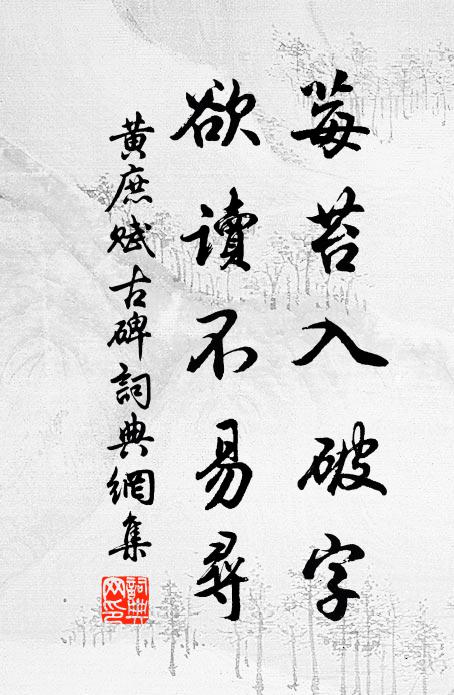 莓苔入破字
欲讀不易尋
黃庶賦古碑詞典網集